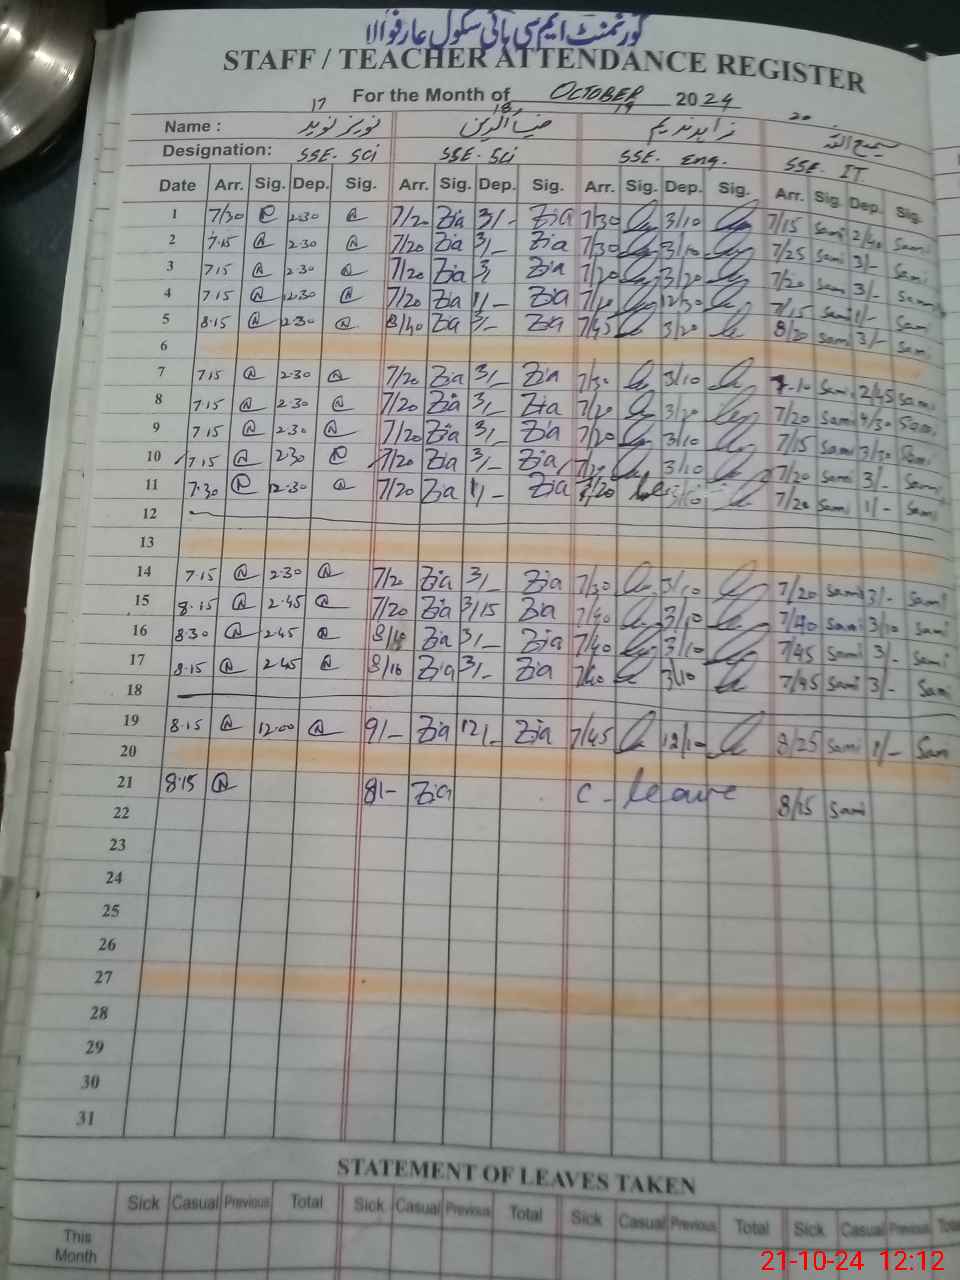 گورنمنٹ ایم سی ہائی سکول عارفوالا
STAFF / TEACHER ATTENDANCE REGISTER
For the Month of OCTOBER 2024
17 18 19 20
Name : نویز نوید ضیاالدین زاہد ندیم سمیع اللہ
Designation: SSE. Sci SSE. Sci SSE. Eng. SSE. IT
Date Arr. Sig. Dep. Sig. Arr. Sig. Dep. Sig. Arr. Sig. Dep. Sig. Arr. Sig. Dep. Sig.
1 7/30 2.30 7/20 Zia 3/- Zia 7/30 3/10 7/15 Sami 2/40 Sami
2 7.15 2.30 7/20 Zia 3/- Zia 7/30 3/10 7/25 Sami 3/- Sami
3 7.15 2.30 7/20 Zia 3/ Zia 7/20 3/20 7/20 Sami 3/- Sami
4 7.15 12.30 7/20 Zia 1/- Zia 12/30 7/15 Sami 1/- Sami
5 8.15 2.30 8/40 Zia 3/- Zia 7/45 3/20 8/20 Sami 3/- Sami
6
7 7.15 2.30 7/20 Zia 3/- Zia 7/30 3/10 7-10 Sami 2/45 Sami
8 7.15 2.30 7/20 Zia 3/- Zia 7/20 3/20 7/20 Sami 4/30 Sami
9 7.15 2.30 7/20 Zia 3/- Zia 7/20 3/10 7/15 Sami 3/30 Sami
10 7.15 2.30 7/20 Zia 3/- Zia 3/10 7/20 Sami 3/- Sami
11 7.30 12.30 7/20 Zia 1/- Zia 7/20 7/20 Sami 1/- Sami
12
13
14 7.15 2.30 7/20 Zia 3/- Zia 7/30 3/10 7/20 Sami 3/- Sami
15 8.15 2.45 7/20 Zia 3/15 Zia 7/40 3/10 7/40 Sami 3/10 Sami
16 8.30 2.45 Zia 3/- Zia 7/40 3/10 7/45 Sami 3/- Sami
17 8.15 2.45 8/10 Zia 3/- Zia 7/40 3/10 7/45 Sami 3/- Sami
18
19 8.15 12.00 9/- Zia 12/- Zia 7/45 12/10 8/25 Sami 1/- Sam
20
21 8.15 8/- Zia C - leave 8/15 Sami
22
23
24
25
26
27
28
29
30
31
STATEMENT OF LEAVES TAKEN
Sick Casual Previous Total Sick Casual Previous Total Sick Casual Previous Total Sick Casual Previous Tota
This
Month
21-10-24 12:12